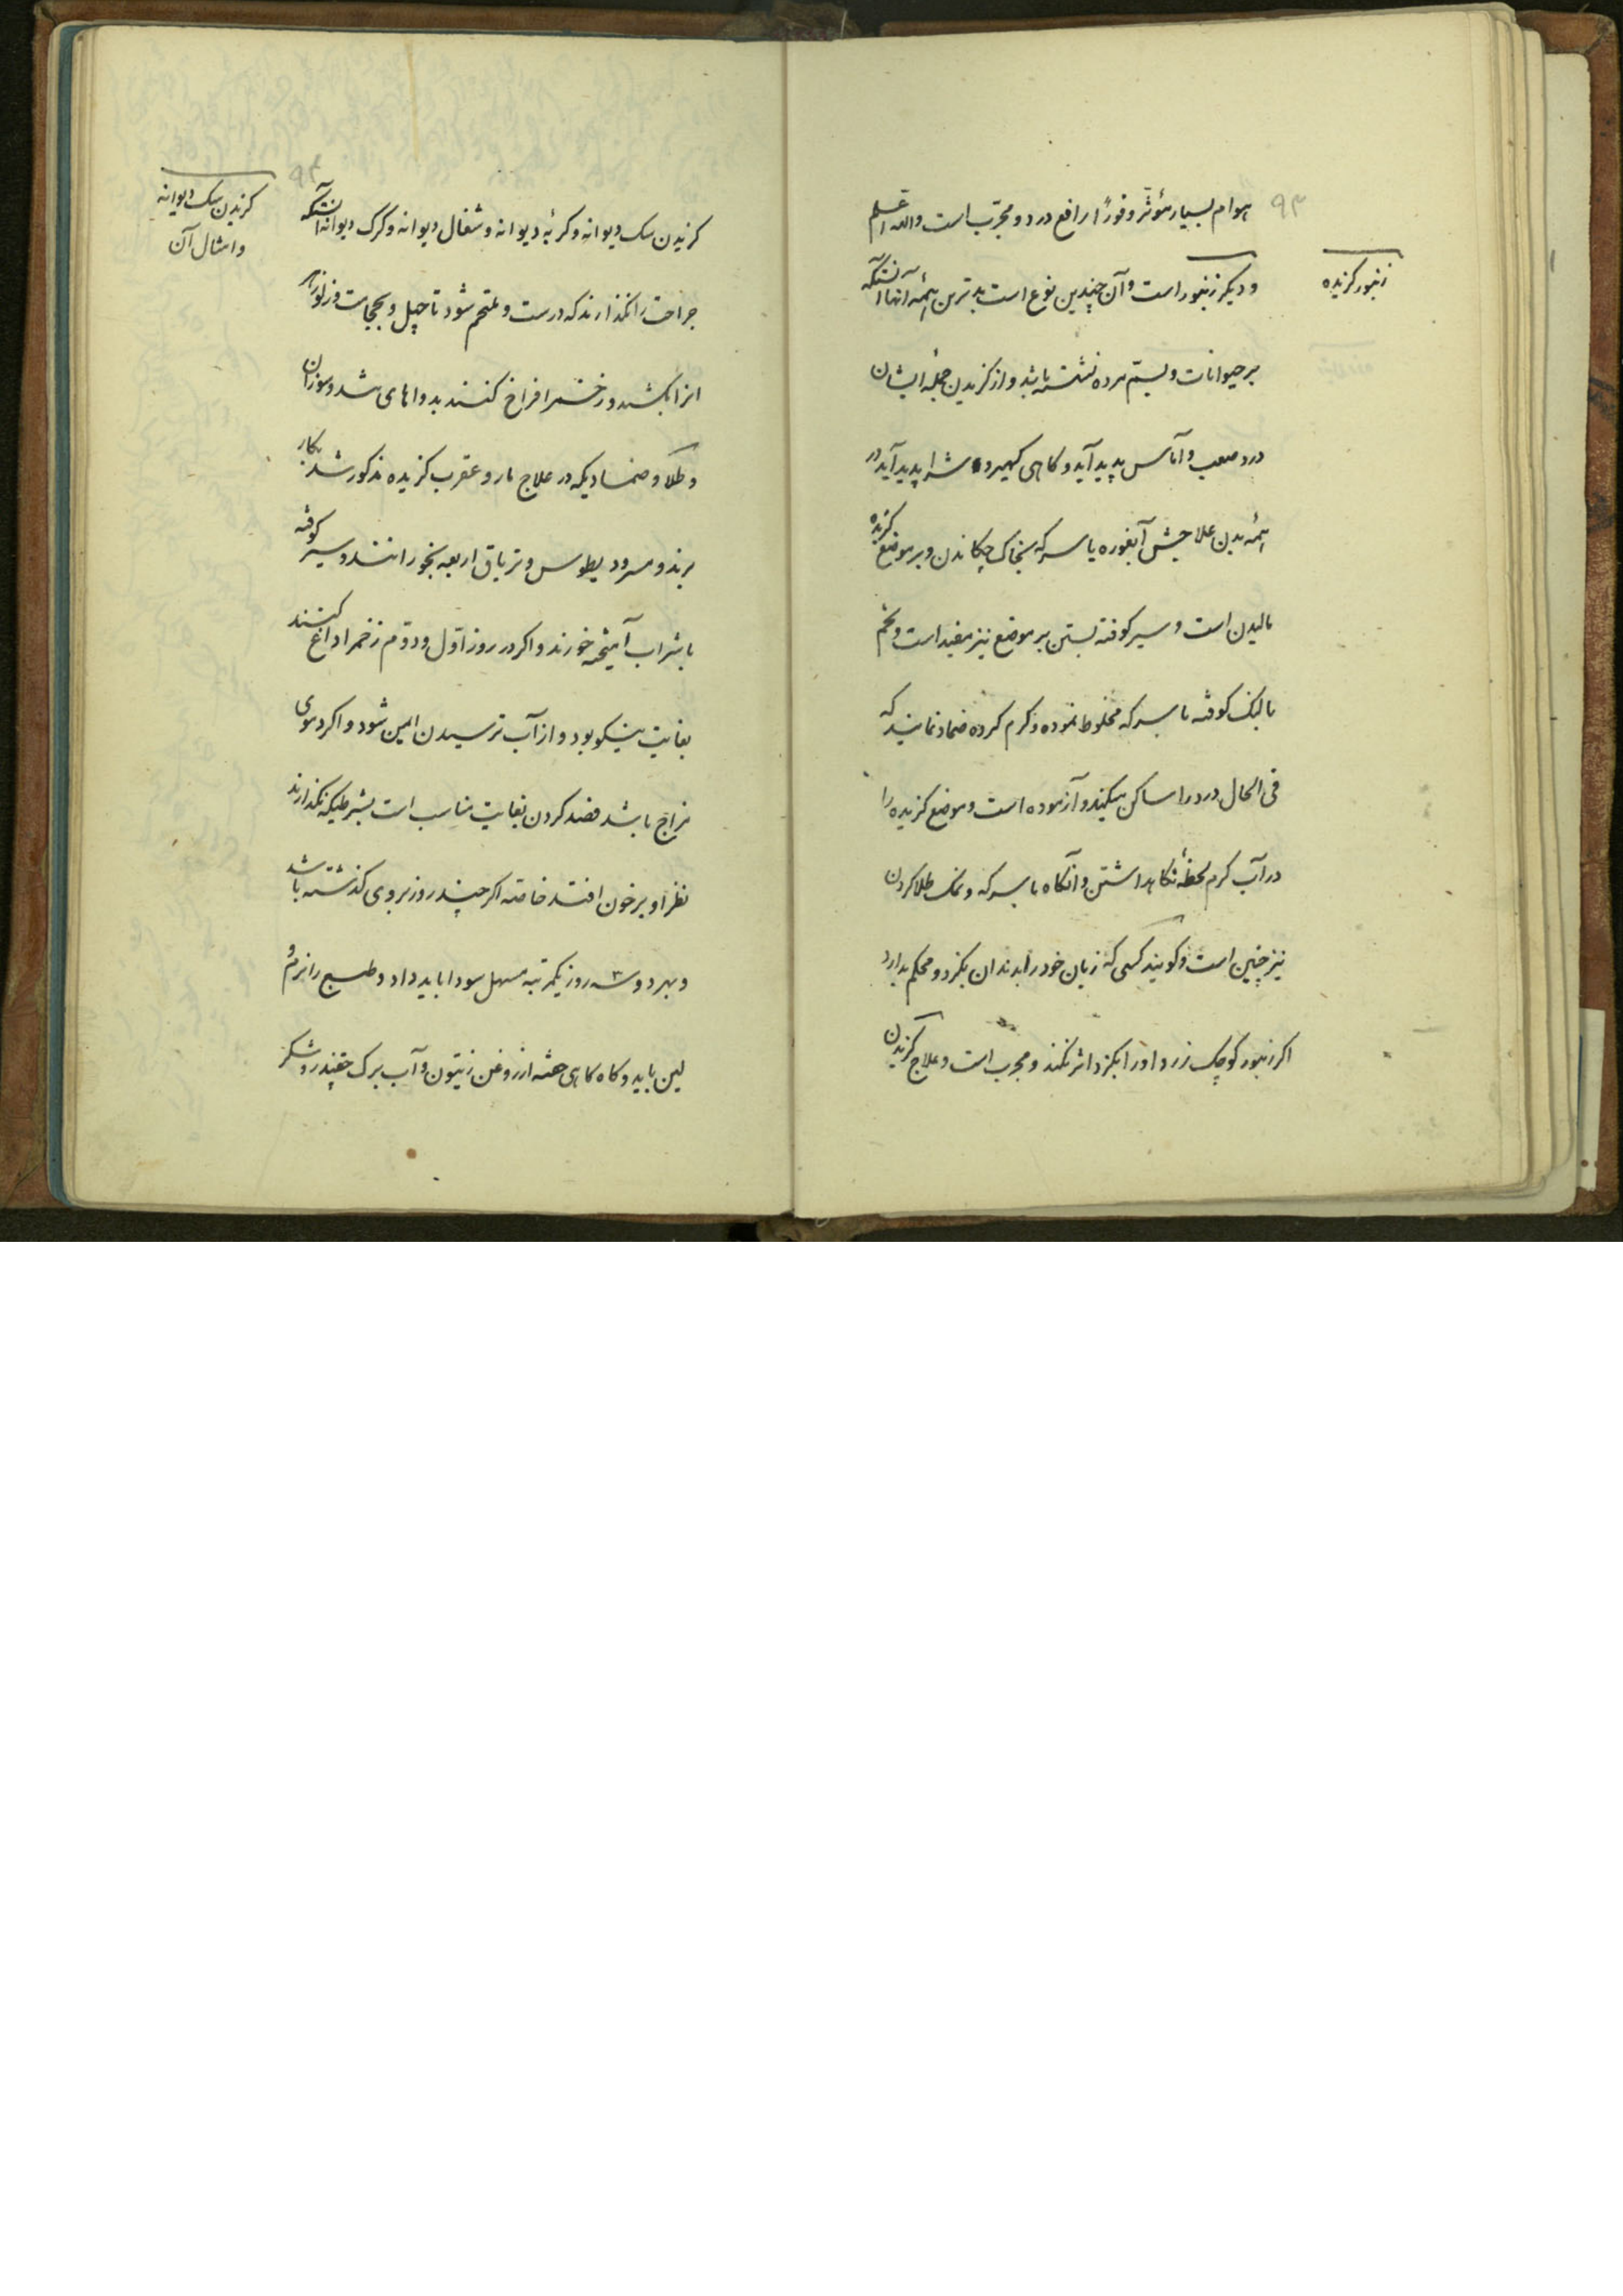 ۹۳
هوام بسیار مؤثر و فوراً رافع درد و مجرّب است والله اعلم
زنبور گزیده
و دیگر زنبور است و آن چندین نوع است بدترین همهٔ آنها آنستکه
بر حیوانات و سم مرده نشسته باشد و از گزیدن جمله ایشان
درد صعب و آماس پدید آید و گاهی کهیر و شرا پدید آید در
همهٔ بدن علاجش آبغوره یا سرکه بخاک چکاندن و بر موضع گزیده
مالیدن است و سیر کوفته بستن بر موضع نیز مفید است و تخم
بالنگ کوفته با سرکه مخلوط نموده و گرم کرده ضماد نمایند که
فی الحال درد را ساکن میکند و آزموده است و موضع گزیده را
در آب گرم لحظهٔ نگاهداشتن و آنگاه با سرکه و نمک طلا کردن
نیز چنین است و گویند کسی که زبان خود را بدندان بگزد و محکم بدارد
اگر زنبور کوچک زرد او را بگزد اثر نکند و مجرب است و علاج گزیدن
۹۴
گزیدن سگ دیوانه
و امثال آن
گزیدن سگ دیوانه و گربهٔ دیوانه و شغال دیوانه و گرگ دیوانه آنستکه
جراحت را نگذارند که درست و ملتحم شود تا چهل و بحجامت و زلو زهر
انرا بکشند و زخمرا فراخ کنند بدواهای تند و سوزان
و طلا و ضمادیکه در علاج مار و عقرب گزیده مذکور شد بکار
برند و مسرودیطوس و تریاق اربعه بخورانند و سیر کوفته
با شراب آمیخته خورند و اگر در روز اوّل و دوّم زخمرا داغ کنند
بغایت نیکو بود و از آب ترسیدن ایمن شود و اگر دموی
مزاج باشد فصد کردن بغایت مناسب است بشرطیکه نگذارند
نظر او بر خون افتد خاصّه اگر چند روز بروی گذشته باشد
و بهر دو سه روز یکمرتبه مسهل سودا باید داد و طبع را نرم و
لین باید و گاه گاهی حقنه از روغن زیتون و آب برگ چقندر و شکر